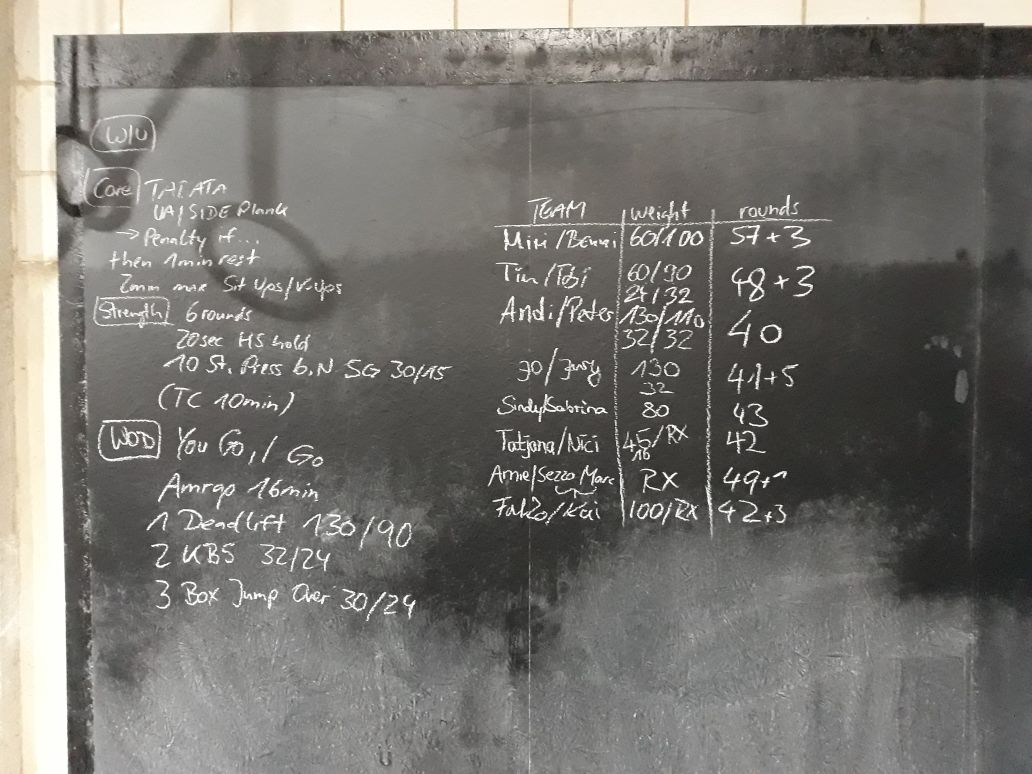 W/U
Core TABATA
UA/SIDE Plank
→ Penalty if...
then 1min rest
2min max Sit Ups/V-Ups
Strength 6 rounds
20sec HS hold
10 St. Press b.N SG 30/15
(TC 10min)
WOD You Go, I Go
Amrap 16min
1 Deadlift 130/90
2 KBS 32/24
3 Box Jump Over 30/24
TEAM weight rounds
Miri/Benni 60/100 57+3
Tim/Tobi 60/90 48+3
24/32
Andi/Peter 130/110 40
32/32
Jo/ 130 41+5
32
Sindy/Sabrina 80 43
Tatjana/Nici 45/RX 42
16
Arne/Sezzo/Marc RX 49+1
/Kai 100/RX 42+3